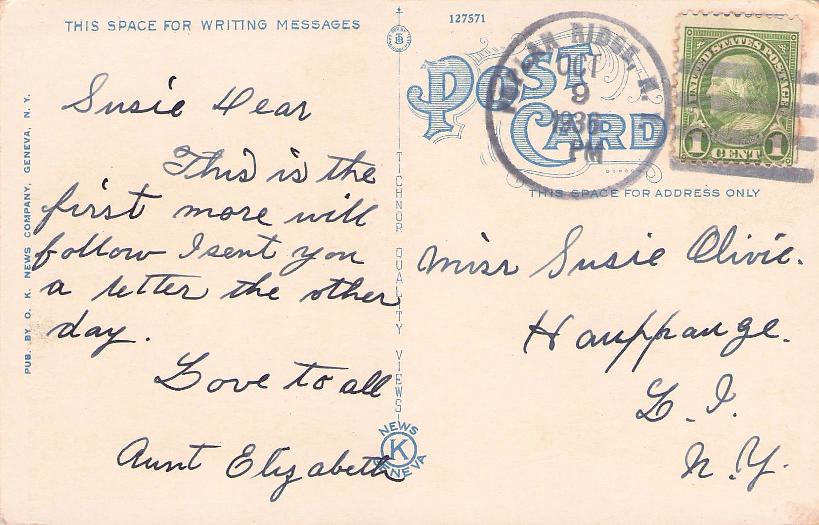 THIS SPACE FOR WRITING MESSAGES
127571
POST CARD
RIDGE, N.
OCT
9
1936
PM
UNITED STATES POSTAGE
1 CENT 1
THIS SPACE FOR ADDRESS ONLY
PUB. BY O. K. NEWS COMPANY, GENEVA, N. Y.
TICHNOR QUALITY VIEWS
Susie Dear
This is the
first more will
follow I sent you
a letter the other
day.
Love to all
Aunt Elizabeth
Miss Susie Olivie.
Hauppauge.
L. I.
N. Y.
NEWS
K
GENEVA